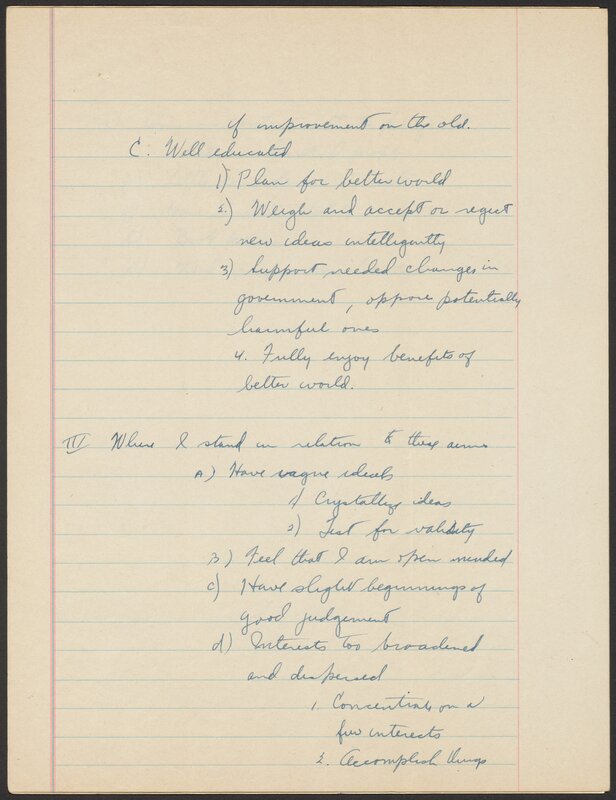 of improvement on the old.
C. Well educated
1) Plan for better world
2.) Weigh and accept or reject
new ideas intelligently
3) Support needed changes in
government, oppose potentially
harmful ones
4. Fully enjoy benefits of
better world.
III Where I stand in relation to these aims
A.) Have vague ideals
1) Crystallize ideas
2) Test for validity
B.) Feel that I am open minded
c) Have slight beginnings of
good judgement
d) Interests too broadened
and dispersed
1. Concentrate on a
few interests
2. Accomplish things